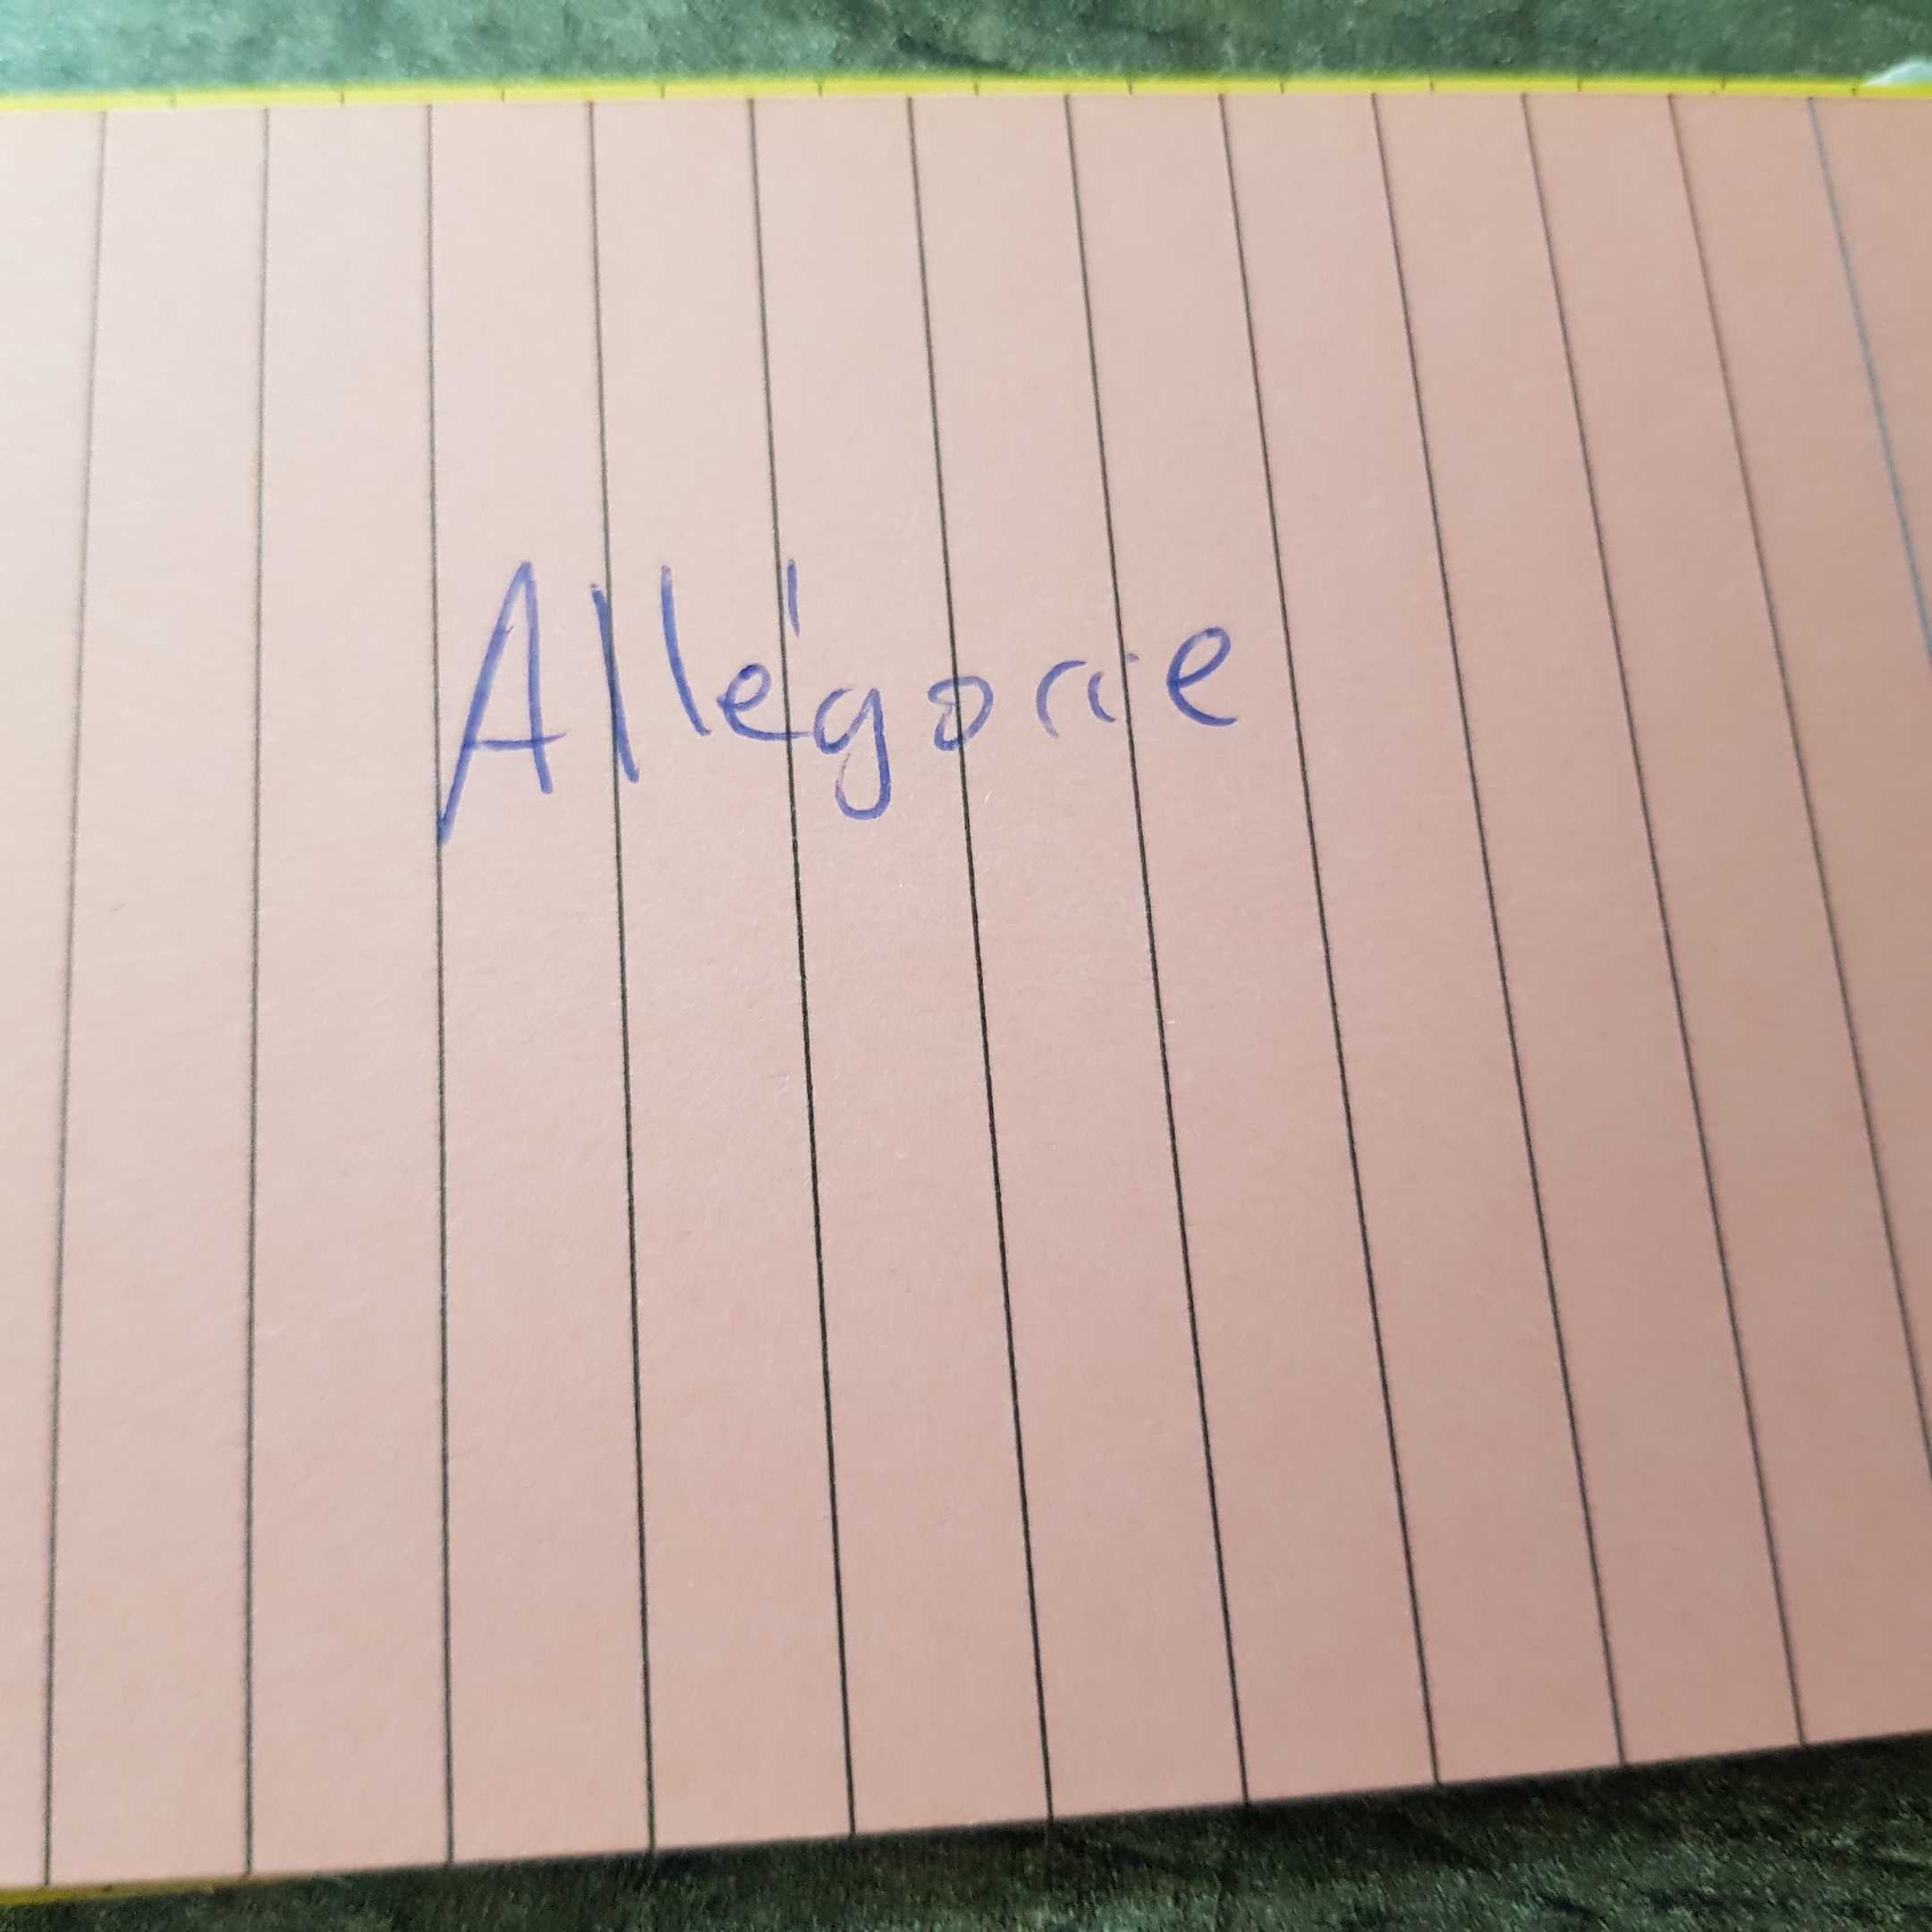 Allégorie